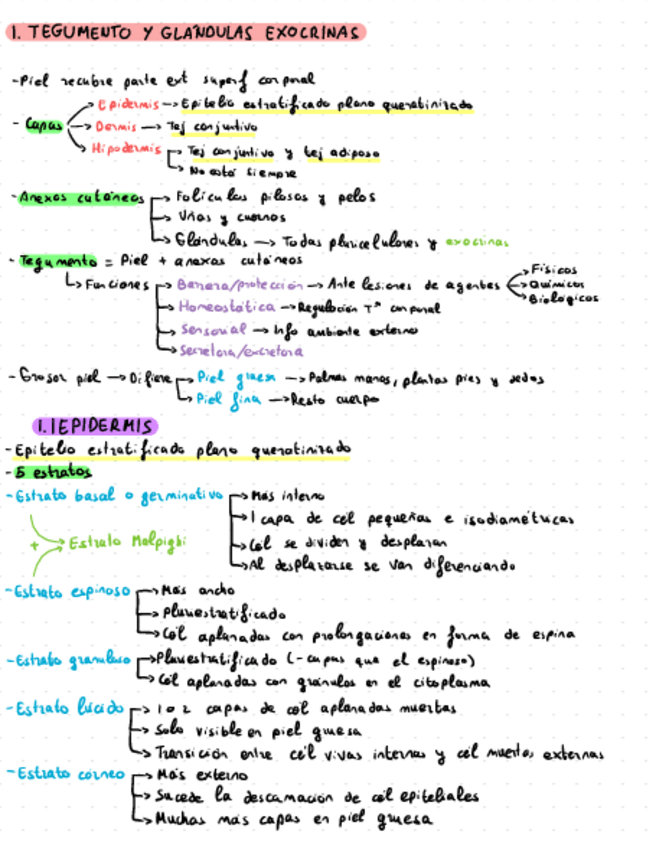 1. TEGUMENTO Y GLÁNDULAS EXOCRINAS
-Piel recubre parte ext superf corporal
- Capas → Epidermis → Epitelio estratificado plano queratinizado
→ Dermis → Tej conjuntivo
→ Hipodermis → Tej conjuntivo y tej adiposo
→ No está siempre
- Anexos cutáneos → Folículos pilosos y pelos
→ Uñas y cuernos
→ Glándulas → Todas pluricelulares y exocrinas
- Tegumento = Piel + anexos cutáneos
→ Funciones → Barrera/protección → Ante lesiones de agentes → Físicos
→ Químicos
→ Biológicos
→ Homeostática → Regulación Tª corporal
→ Sensorial → Info ambiente externo
→ Secretora/excretora
- Grosor piel → Difiere → Piel gruesa → Palmas manos, plantas pies y dedos
→ Piel fina → Resto cuerpo
1.1 EPIDERMIS
- Epitelio estratificado plano queratinizado
- 5 estratos
- Estrato basal o germinativo → Más interno
→ 1 capa de cél pequeñas e isodiamétricas
+ → Estrato Malpighi → Cél se dividen y desplazan
→ Al desplazarse se van diferenciando
- Estrato espinoso → Más ancho
→ Pluriestratificado
→ Cél aplanadas con prolongaciones en forma de espina
- Estrato granuloso → Pluriestratificado (- capas que el espinoso)
→ Cél aplanadas con gránulos en el citoplasma
- Estrato lúcido → 1 o 2 capas de cél aplanadas muertas
→ Solo visible en piel gruesa
→ Transición entre cél vivas internas y cél muertas externas
- Estrato córneo → Más externo
→ Sucede la descamación de cél epiteliales
→ Muchas más capas en piel gruesa